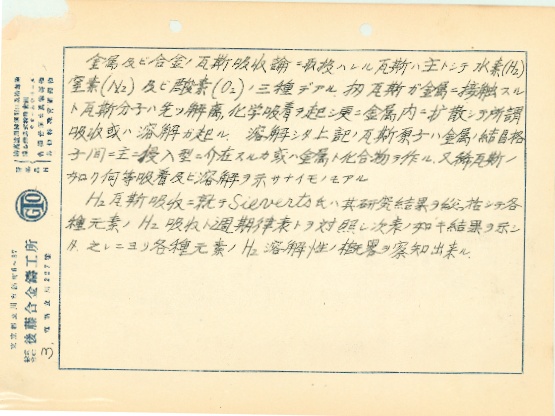 金属及ビ合金ノ瓦斯吸収論ニ取扱ハレル瓦斯ハ主トシテ水素(H₂)
窒素(N₂)及ビ酸素(O₂)ノ三種デアル 扨瓦斯ガ金属ニ接触スル
ト瓦斯分子ハ先ヅ解離,化学吸着ヲ起シ更ニ金属内ニ拡散シ所謂
吸収或ハ溶解ガ起ル. 溶解シタ上記ノ瓦斯原子ハ金属ノ結晶格
子間ニ主ニ侵入型ニ介在スルカ或ハ金属ト化合物ヲ作ル.又稀瓦斯ノ
如ク何等吸着及ビ溶解ヲ示サナイモノモアル
H₂瓦斯吸収ニ就テSieverts氏ハ其研究結果ヲ総括シテ各
種元素ノH₂吸収ト週期律表トヲ対照シ次表ノ如キ結果ヲ示シ
タ.之レニヨリ各種元素ノH₂溶解性ノ概略ヲ察知出来ル.
GIO
後藤合金鋳工所
3.